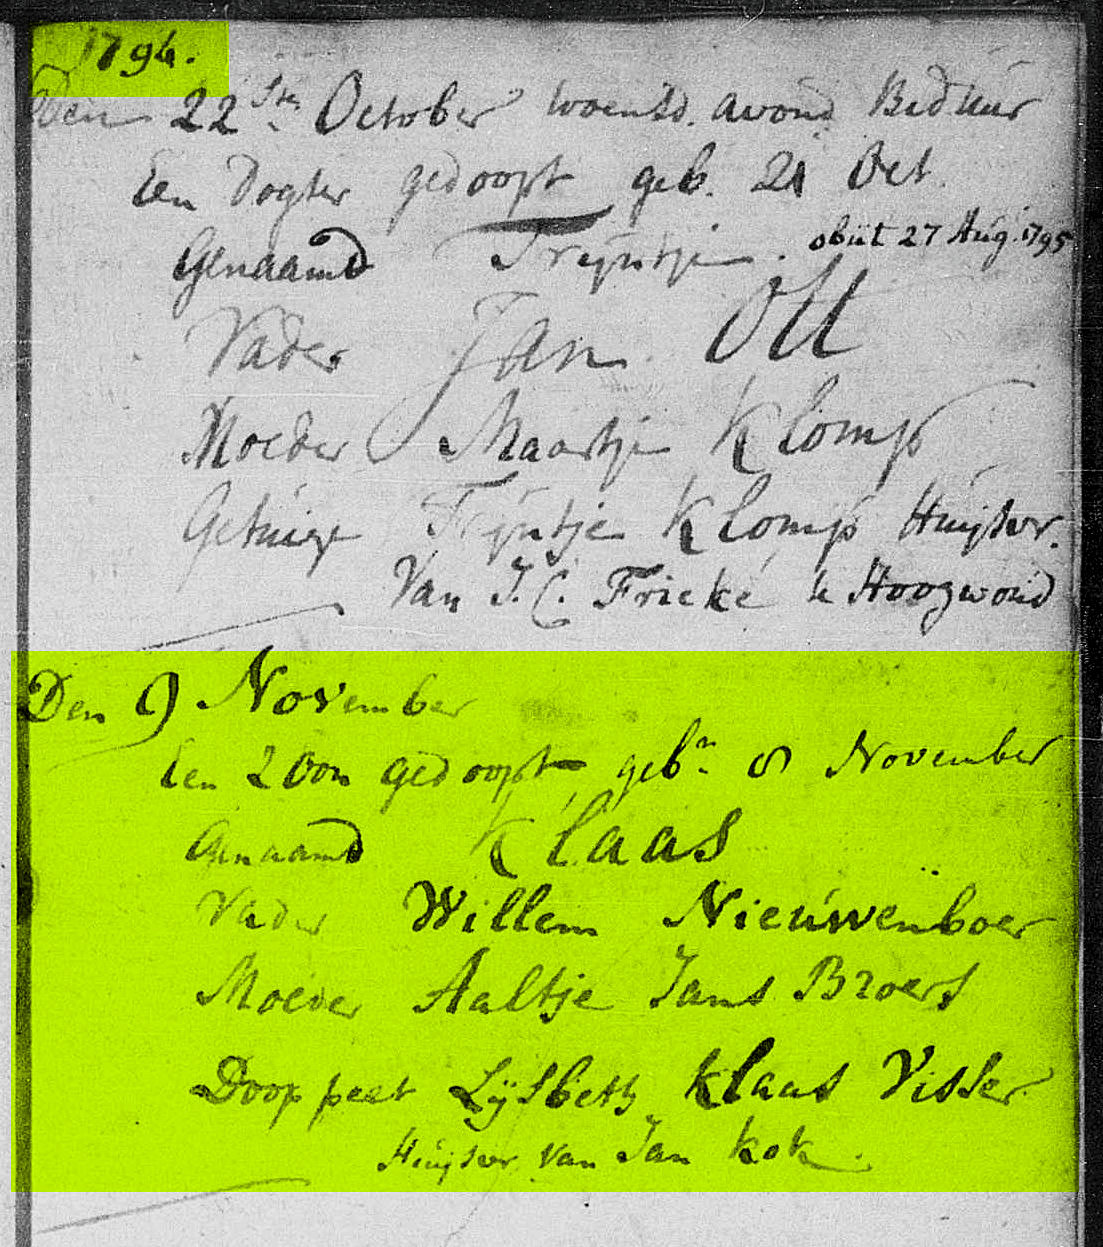 1794.
Den 22ste October woensd. avond Bed uur
Een Dogter gedoopt geb. 21 Oct.
Genaamd Trijntje. obiit 27 Aug. 1795
Vader Jan Ott
Moeder Maartje Klomp
Getuige Trijntje Klomp Huijsvr.
Van J. C. Fricke te Hoogwoud
Den 9 November
Een Zoon gedoopt gebn 8 November
Genaamd Klaas
Vader Willem Nieuwenboer
Moeder Aaltje Jans Broers
Doop peet Lijsbeth Klaas Visser
Huijsvr. van Jan Kok.